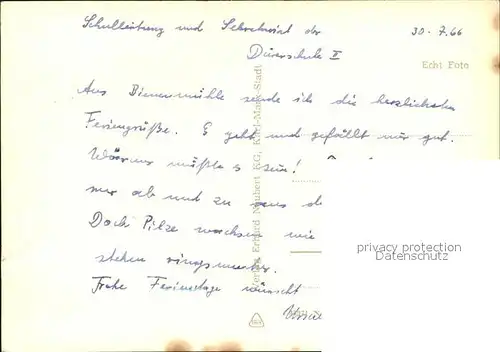 Schulleitung und Sekretariat der
30.7.66
Dürerschule II
Echt Foto
Aus Bienenmühle sende ich die herzlichsten
Feriengrüße. Es geht und gefällt mir gut.
Wärmer müßte es sein!
nur ab und zu
Doch Pilze wachsen wie
stehen ringsumher.
Frohe Ferientage wünscht
Verlag Erhard Neubert KG, Karl-Marx-Stadt
privacy protection
Datenschutz